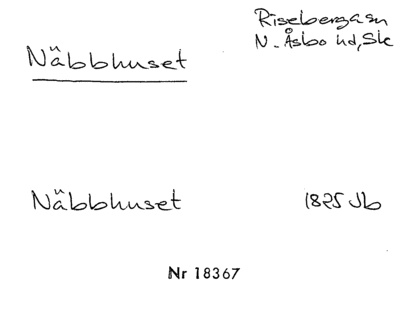 Riseberga sn
N. Åsbo hd, Sk
Näbbhuset
Näbbhuset 1825 Jb
Nr 18367